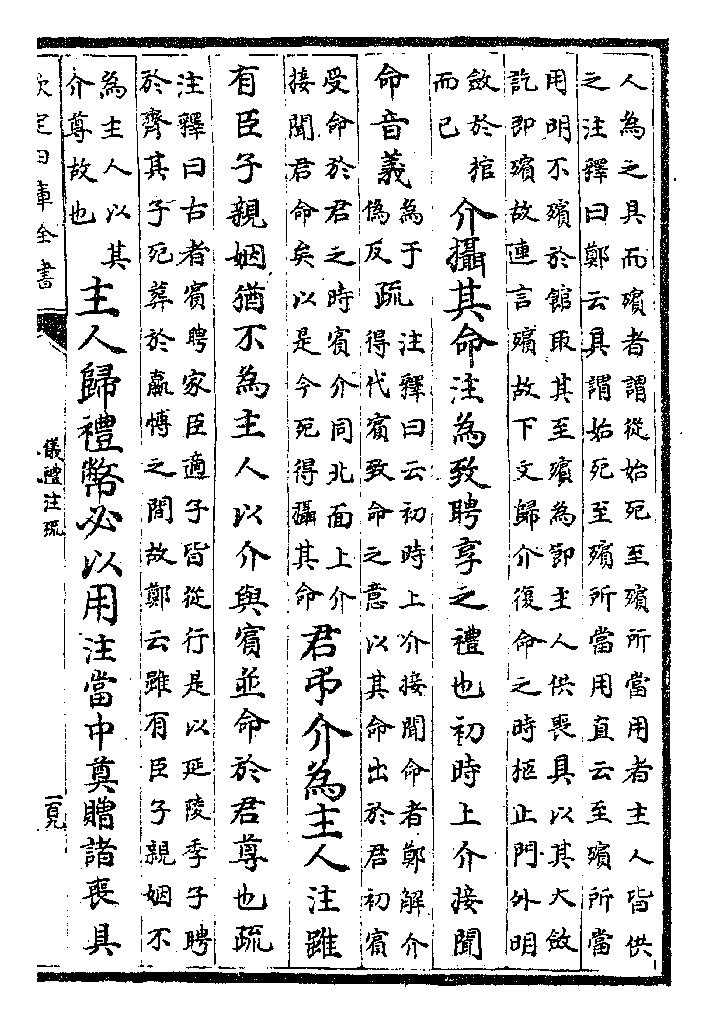 人為之具而殯者謂從始死至殯所當用者主人皆供
之注釋曰鄭云具謂始死至殯所當用直云至殯所當
用明不殯於館取其至殯為節主人供喪具以其大斂
訖即殯故連言殯故下文歸介復命之時柩止門外明
斂於棺
而已
介攝其命注為致聘享之禮也初時上介接聞
命音義
為于
偽反
疏
注釋曰云初時上介接聞命者鄭解介
得代賓致命之意以其命出於君初賓
受命於君之時賓介同北面上介
接聞君命矣以是今死得攝其命
君弔介為主人注雖
有臣子親姻猶不為主人以介與賓並命於君尊也疏
注釋曰古者賓聘家臣適子皆從行是以延陵季子聘
於齊其子死葬於嬴博之間故鄭云雖有臣子親姻不
為主人以其
介尊故也
主人歸禮幣必以用注當中奠贈諸喪具
欽定四庫全書
儀禮注疏
一百九